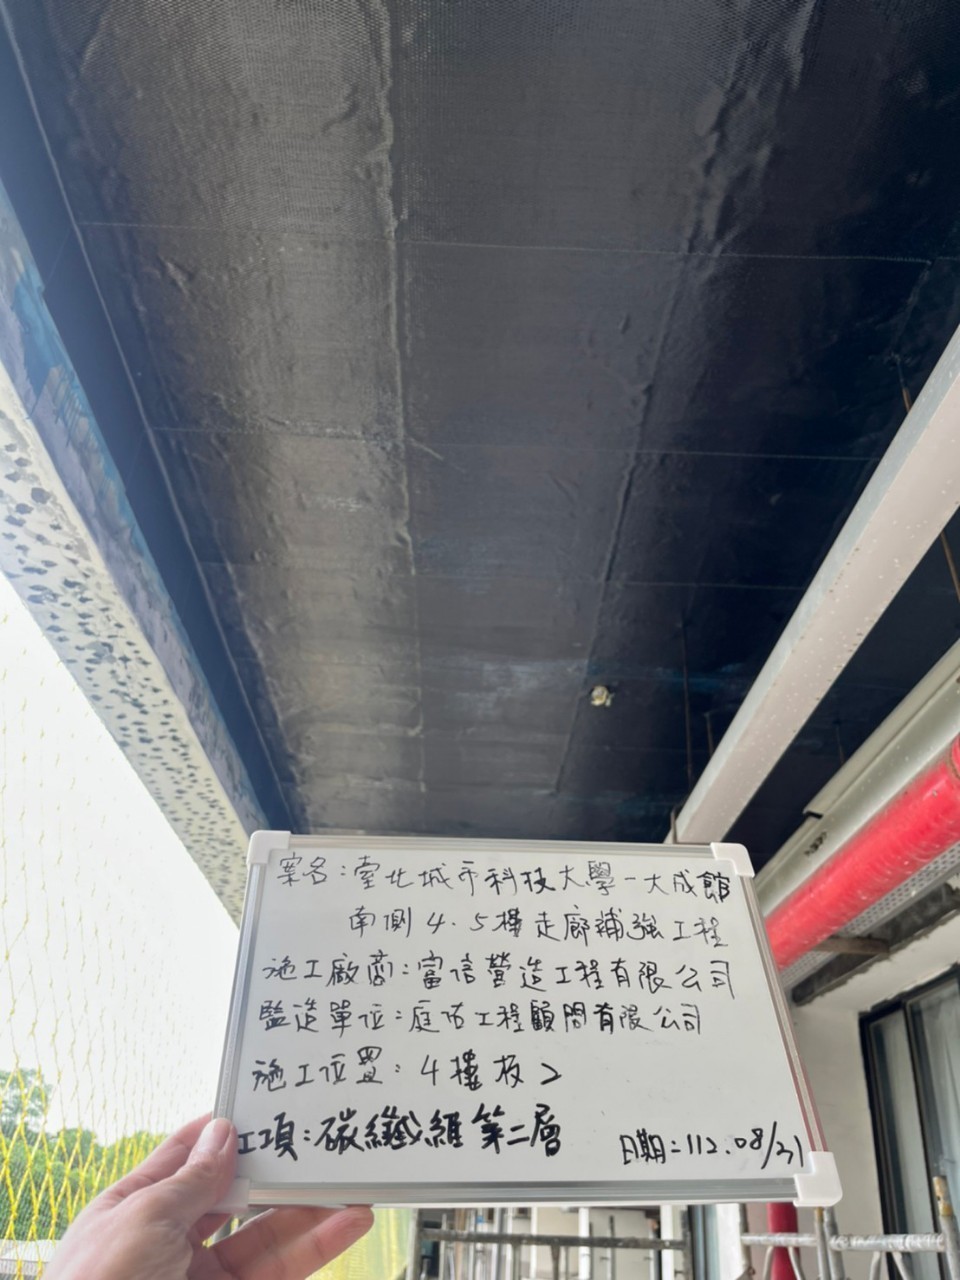 案名:臺北城市科技大學-大成館
南側4.5樓走廊補強工程
施工廠商:富信營造工程有限公司
監造單位:庭佑工程顧問有限公司
施工位置:4樓板2
工項:碳纖維第二層
日期:112.08/31